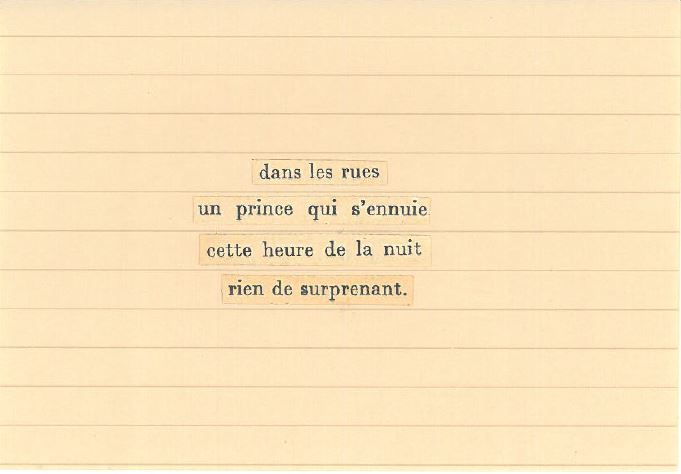 dans les rues
un prince qui s'ennuie
cette heure de la nuit
rien de surprenant.